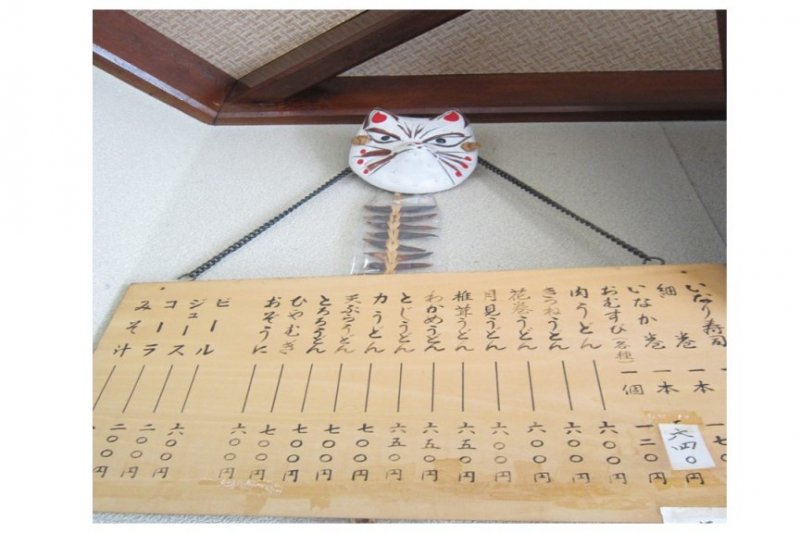 いなり寿司
細巻 一本 一七〇円
いなか巻 一本 六四〇円
おむすび(各種) 一個 一二〇円
肉うどん 六〇〇円
きつねうどん 六〇〇円
花巻うどん 六〇〇円
月見うどん 六〇〇円
椎茸うどん 六五〇円
わかめうどん 六五〇円
とじうどん 六五〇円
力うどん 七〇〇円
天ぷらうどん 七〇〇円
とろろうどん 七〇〇円
ひやむぎ 七〇〇円
おぞうに 六〇〇円
ビール 六〇〇円
ジュース 二〇〇円
コーラ 二〇〇円
みそ汁